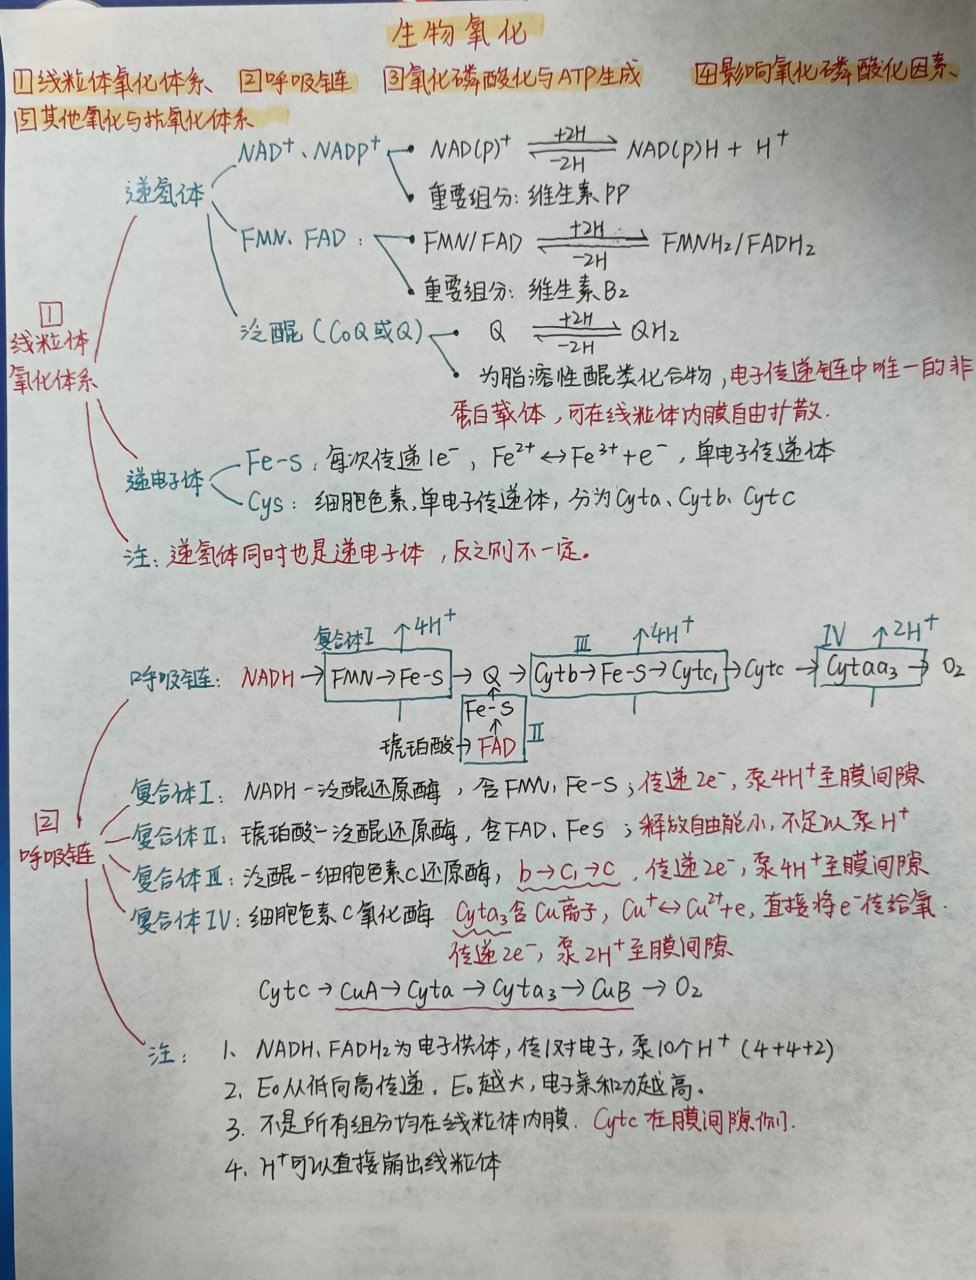 生物氧化
①线粒体氧化体系、 ②呼吸链 ③氧化磷酸化与ATP生成 ④影响氧化磷酸化因素、
⑤其他氧化与抗氧化体系
NAD⁺、NADP⁺ • NAD(P)⁺ +2H ⇌ -2H NAD(P)H + H⁺
递氢体
• 重要组分: 维生素PP
FMN、FAD: • FMN/FAD +2H ⇌ -2H FMNH₂/FADH₂
• 重要组分: 维生素B₂
① 线粒体氧化体系
泛醌 (CoQ或Q) • Q +2H ⇌ -2H QH₂
• 为脂溶性醌类化合物,电子传递链中唯一的非
蛋白载体,可在线粒体内膜自由扩散.
递电子体
Fe-S: 每次传递1e⁻, Fe²⁺↔Fe³⁺+e⁻, 单电子传递体
Cys: 细胞色素,单电子传递体, 分为Cyta、Cytb、Cytc
注: 递氢体同时也是递电子体,反之则不一定。
复合体I ↑4H⁺ III ↑4H⁺ IV ↑2H⁺
呼吸链: NADH→FMN→Fe-S→Q→Cytb→Fe-S→Cytc₁→Cytc→Cytaa₃→O₂
Fe-S
↑
琥珀酸→FAD II
② 呼吸链
复合体I: NADH-泛醌还原酶,含FMN,Fe-S;传递2e⁻,泵4H⁺至膜间隙
复合体II: 琥珀酸-泛醌还原酶,含FAD、FeS;释放自由能小,不足以泵H⁺
复合体III: 泛醌-细胞色素c还原酶, b→c₁→c,传递2e⁻,泵4H⁺至膜间隙
复合体IV: 细胞色素c氧化酶 Cyta₃含Cu离子, Cu⁺↔Cu²⁺+e,直接将e⁻传给氧.
传递2e⁻,泵2H⁺至膜间隙
Cytc→CuA→Cyta→Cyta₃→CuB→O₂
注: 1、NADH、FADH₂为电子供体,传1对电子,泵10个H⁺ (4+4+2)
2、E₀从低向高传递, E₀越大,电子亲和力越高。
3、不是所有组分均在线粒体内膜. Cytc在膜间隙侧.
4、H⁺可以直接崩出线粒体